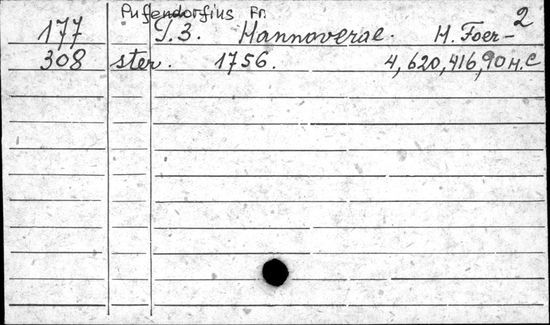 Pufendorfius Fr.
2
177 T.3. Hannoverae. H. Foer-
308 ster. 1756. 4,620,416,90 н.с